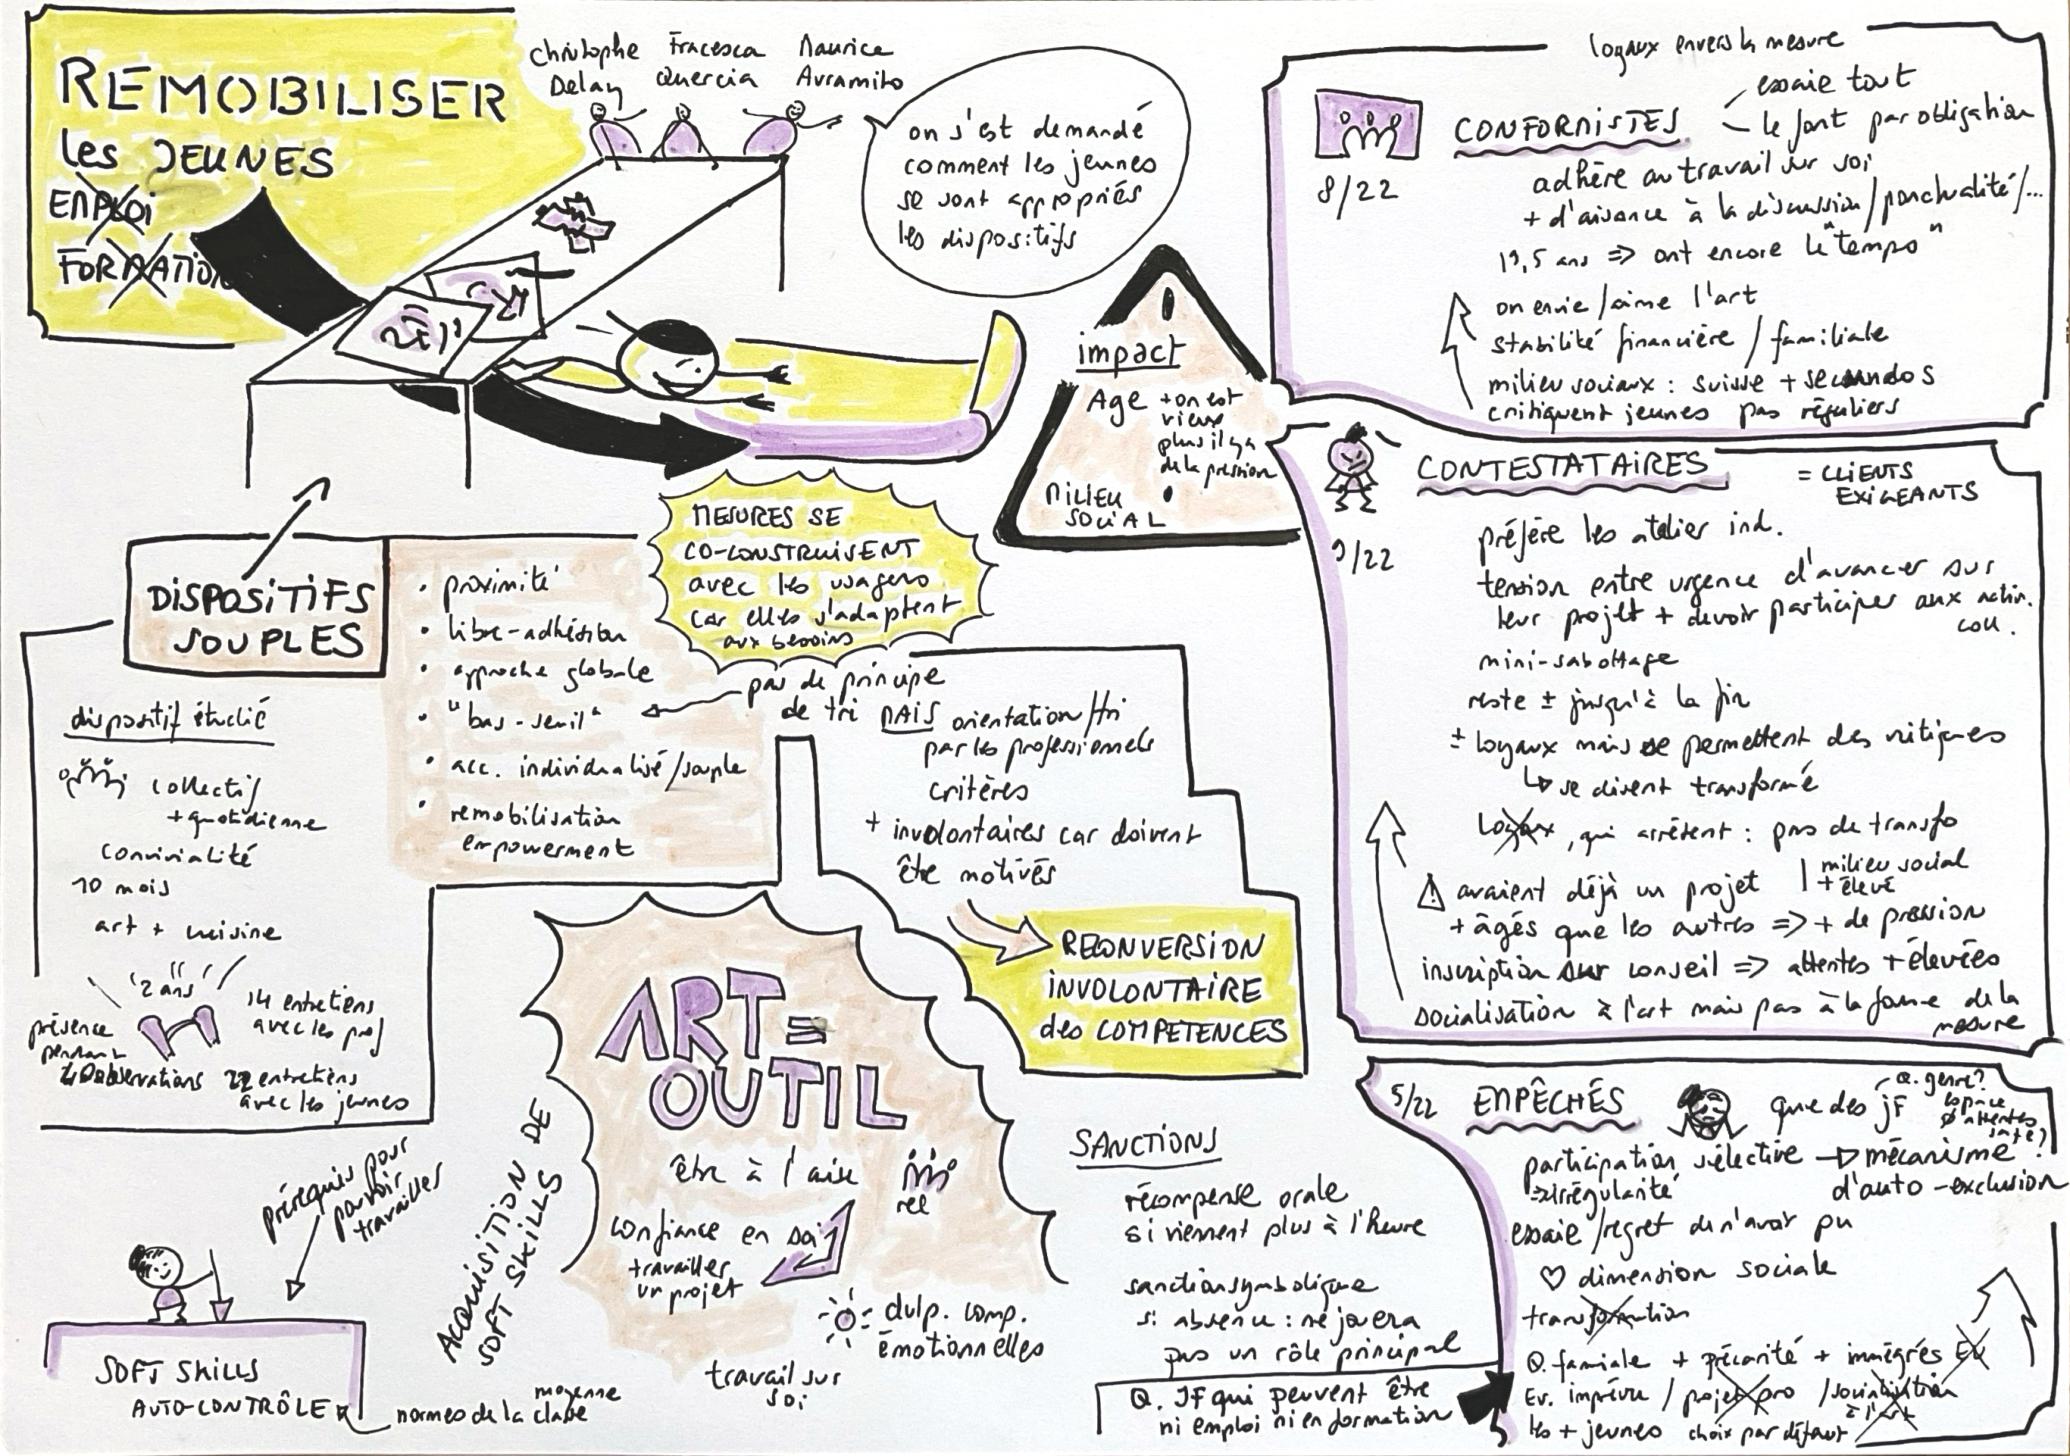 REMOBILISER
les JEUNES
EMPLOI
FORMATION
Christophe Delay
Fracesca Quercia
Maurice Avramito
on s'est demandé
comment les jeunes
se sont appropriés
les dispositifs
impact
Age + on est
vieux
plus il y a
de la pression
MILIEU
SOCIAL
DISPOSITIFS
SOUPLES
• proximité
• libre-adhésion
• approche globale
• "bas-seuil"
• acc. individualisé/souple
• remobilisation
empowerment
MESURES SE
CO-CONSTRUISENT
avec les usagers
car elles s'adaptent
aux besoins
pas de principe
de tri MAIS orientation/tri
par les professionnels
critères
+ involontaires car doivent
être motivés
RECONVERSION
INVOLONTAIRE
des COMPETENCES
dispositif étudié
collectif
+ quotidienne
convivialité
10 mois
art + cuisine
2 ans
présence
pendant
observations
14 entretiens
avec les prof
22 entretiens
avec les jeunes
prérequis pour
pouvoir
travailler
SOFT SKILLS
AUTO-CONTRÔLE
normes de la classe
moyenne
ACQUISITION DE
SOFT SKILLS
ART =
OUTIL
être à l'aise
confiance en soi
travailler
un projet
dvlp. comp.
émotionnelles
travail sur
soi
SANCTIONS
récompense orale
si viennent plus à l'heure
sanction symbolique
si absence : ne jouera
pas un rôle principal
Q. JF qui peuvent être
ni emploi ni en formation
loyaux envers la mesure
CONFORMISTES
essaie tout
le font par obligation
8/22
adhère au travail sur soi
+ d'aisance à la discussion/ponctualité/...
19,5 ans => ont encore le "tempo"
on envie/aime l'art
stabilité financière / familiale
milieu sociaux : suisse + secundos
critiquent jeunes pas réguliers
CONTESTATAIRES
= CLIENTS
EXIGEANTS
9/22
préfère les atelier ind.
tension entre urgence d'avancer sur
leur projet + devoir participer aux activ.
coll.
mini-sabottage
reste ± jusqu'à la fin
± loyaux mais se permettent des critiques
se disent transformé
loyaux, qui arrêtent : pas de transfo
avaient déjà un projet
milieu social
+ élevé
+ âgés que les autres => + de pression
inscription sur conseil => attentes + élevées
socialisation à l'art mais pas à la forme de la
mesure
5/22
EMPÊCHÉS
que des JF
Q. genre?
espace
Ø attentes
participation sélective
=> irrégularité
mécanisme
d'auto-exclusion
essaie/regret de n'avoir pu
♡ dimension sociale
transformation
Q. famiale + précarité + immigrés
Ev. imprévu / projet pro / socialisation
à l'art
les + jeunes choix par défaut